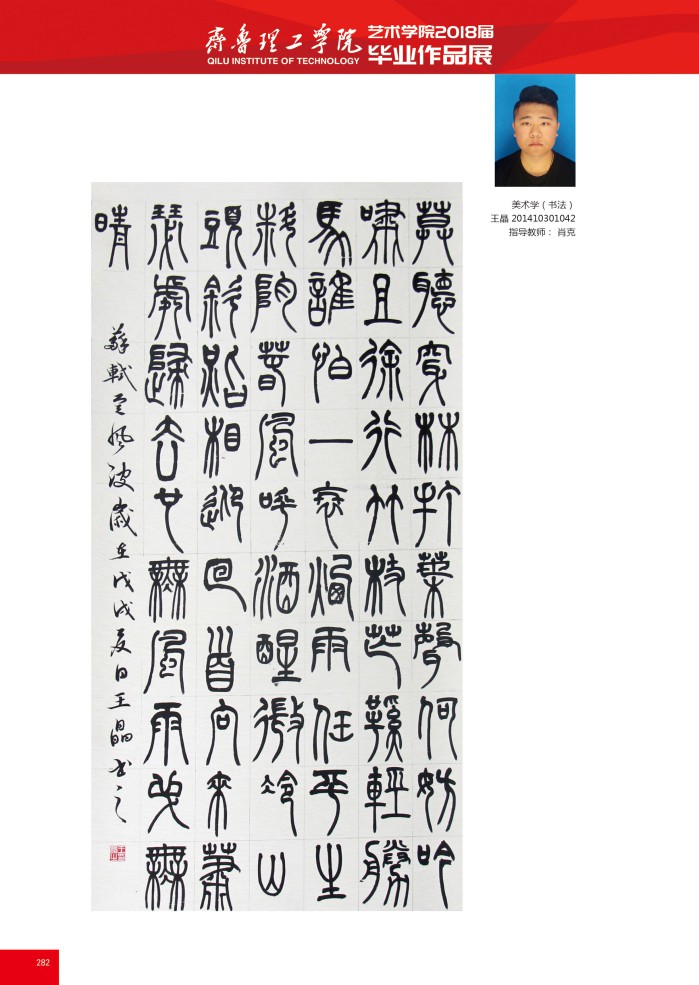 齊魯理工學院
QILU INSTITUTE OF TECHNOLOGY
艺术学院2018届
毕业作品展
美术学（书法）
王晶 201410301042
指导教师： 肖克
莫聽穿林打葉聲何妨吟
嘯且徐行竹杖芒鞵輕勝
馬誰怕一蓑煙雨任平生
料陗春風吹酒醒微冷山
頭斜照相迎回首向來蕭
瑟處歸去也無風雨也無
晴
蘇軾定風波歲在戊戌夏日王晶书之
282